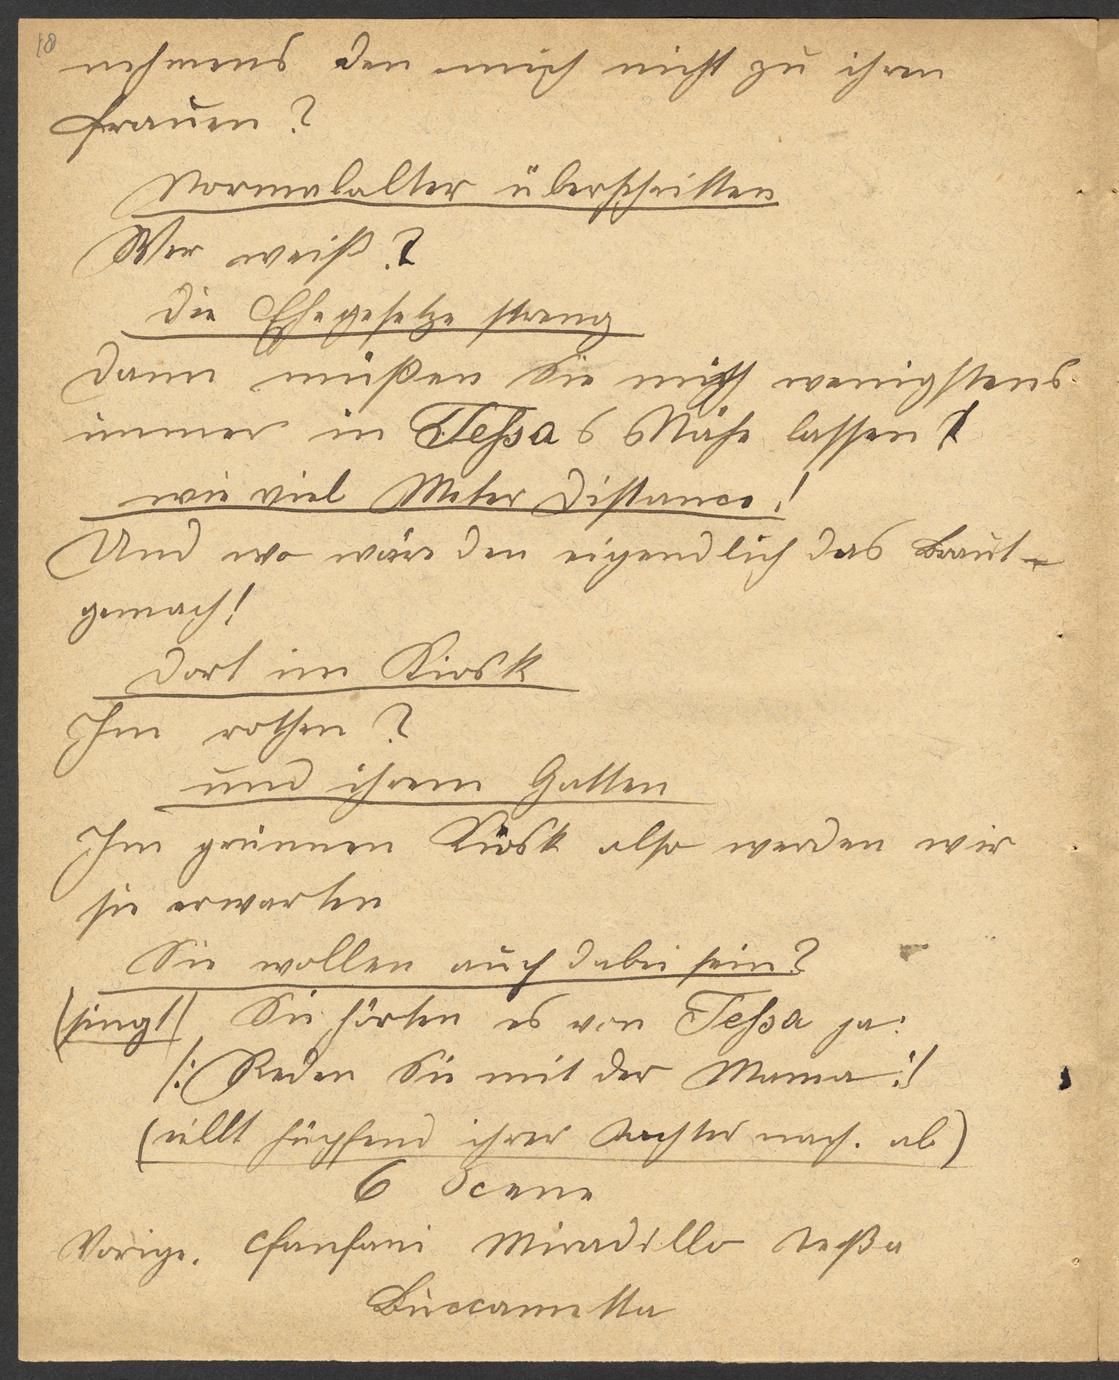 18
nehmens den mich nicht zu ihren
Frauen ?
Normalalter überschritten
Wer weiß ?
die Ehegesetze streng
dann müßen Sie mich wenigstens
immer in Teßa s Nähe lassen ?
wie viel Meter Distance !
Und wo wäre den eigendlich das Braut-
gemach !
dort im Kiosk
Im rothen ?
und ihrem Gatten
Im grünnen Kiosk also werden wir
sie erwarten
Sie wollen auch dabei sein ?
(singt) Sie hörten es von Teßa ja:
/: Reden Sie mit der Mama :/
(eillt hüpfend ihrer Tochter nach. ab)
6 Scene
Vorige. Cfanfani Miradillo Teßa
Buccametta